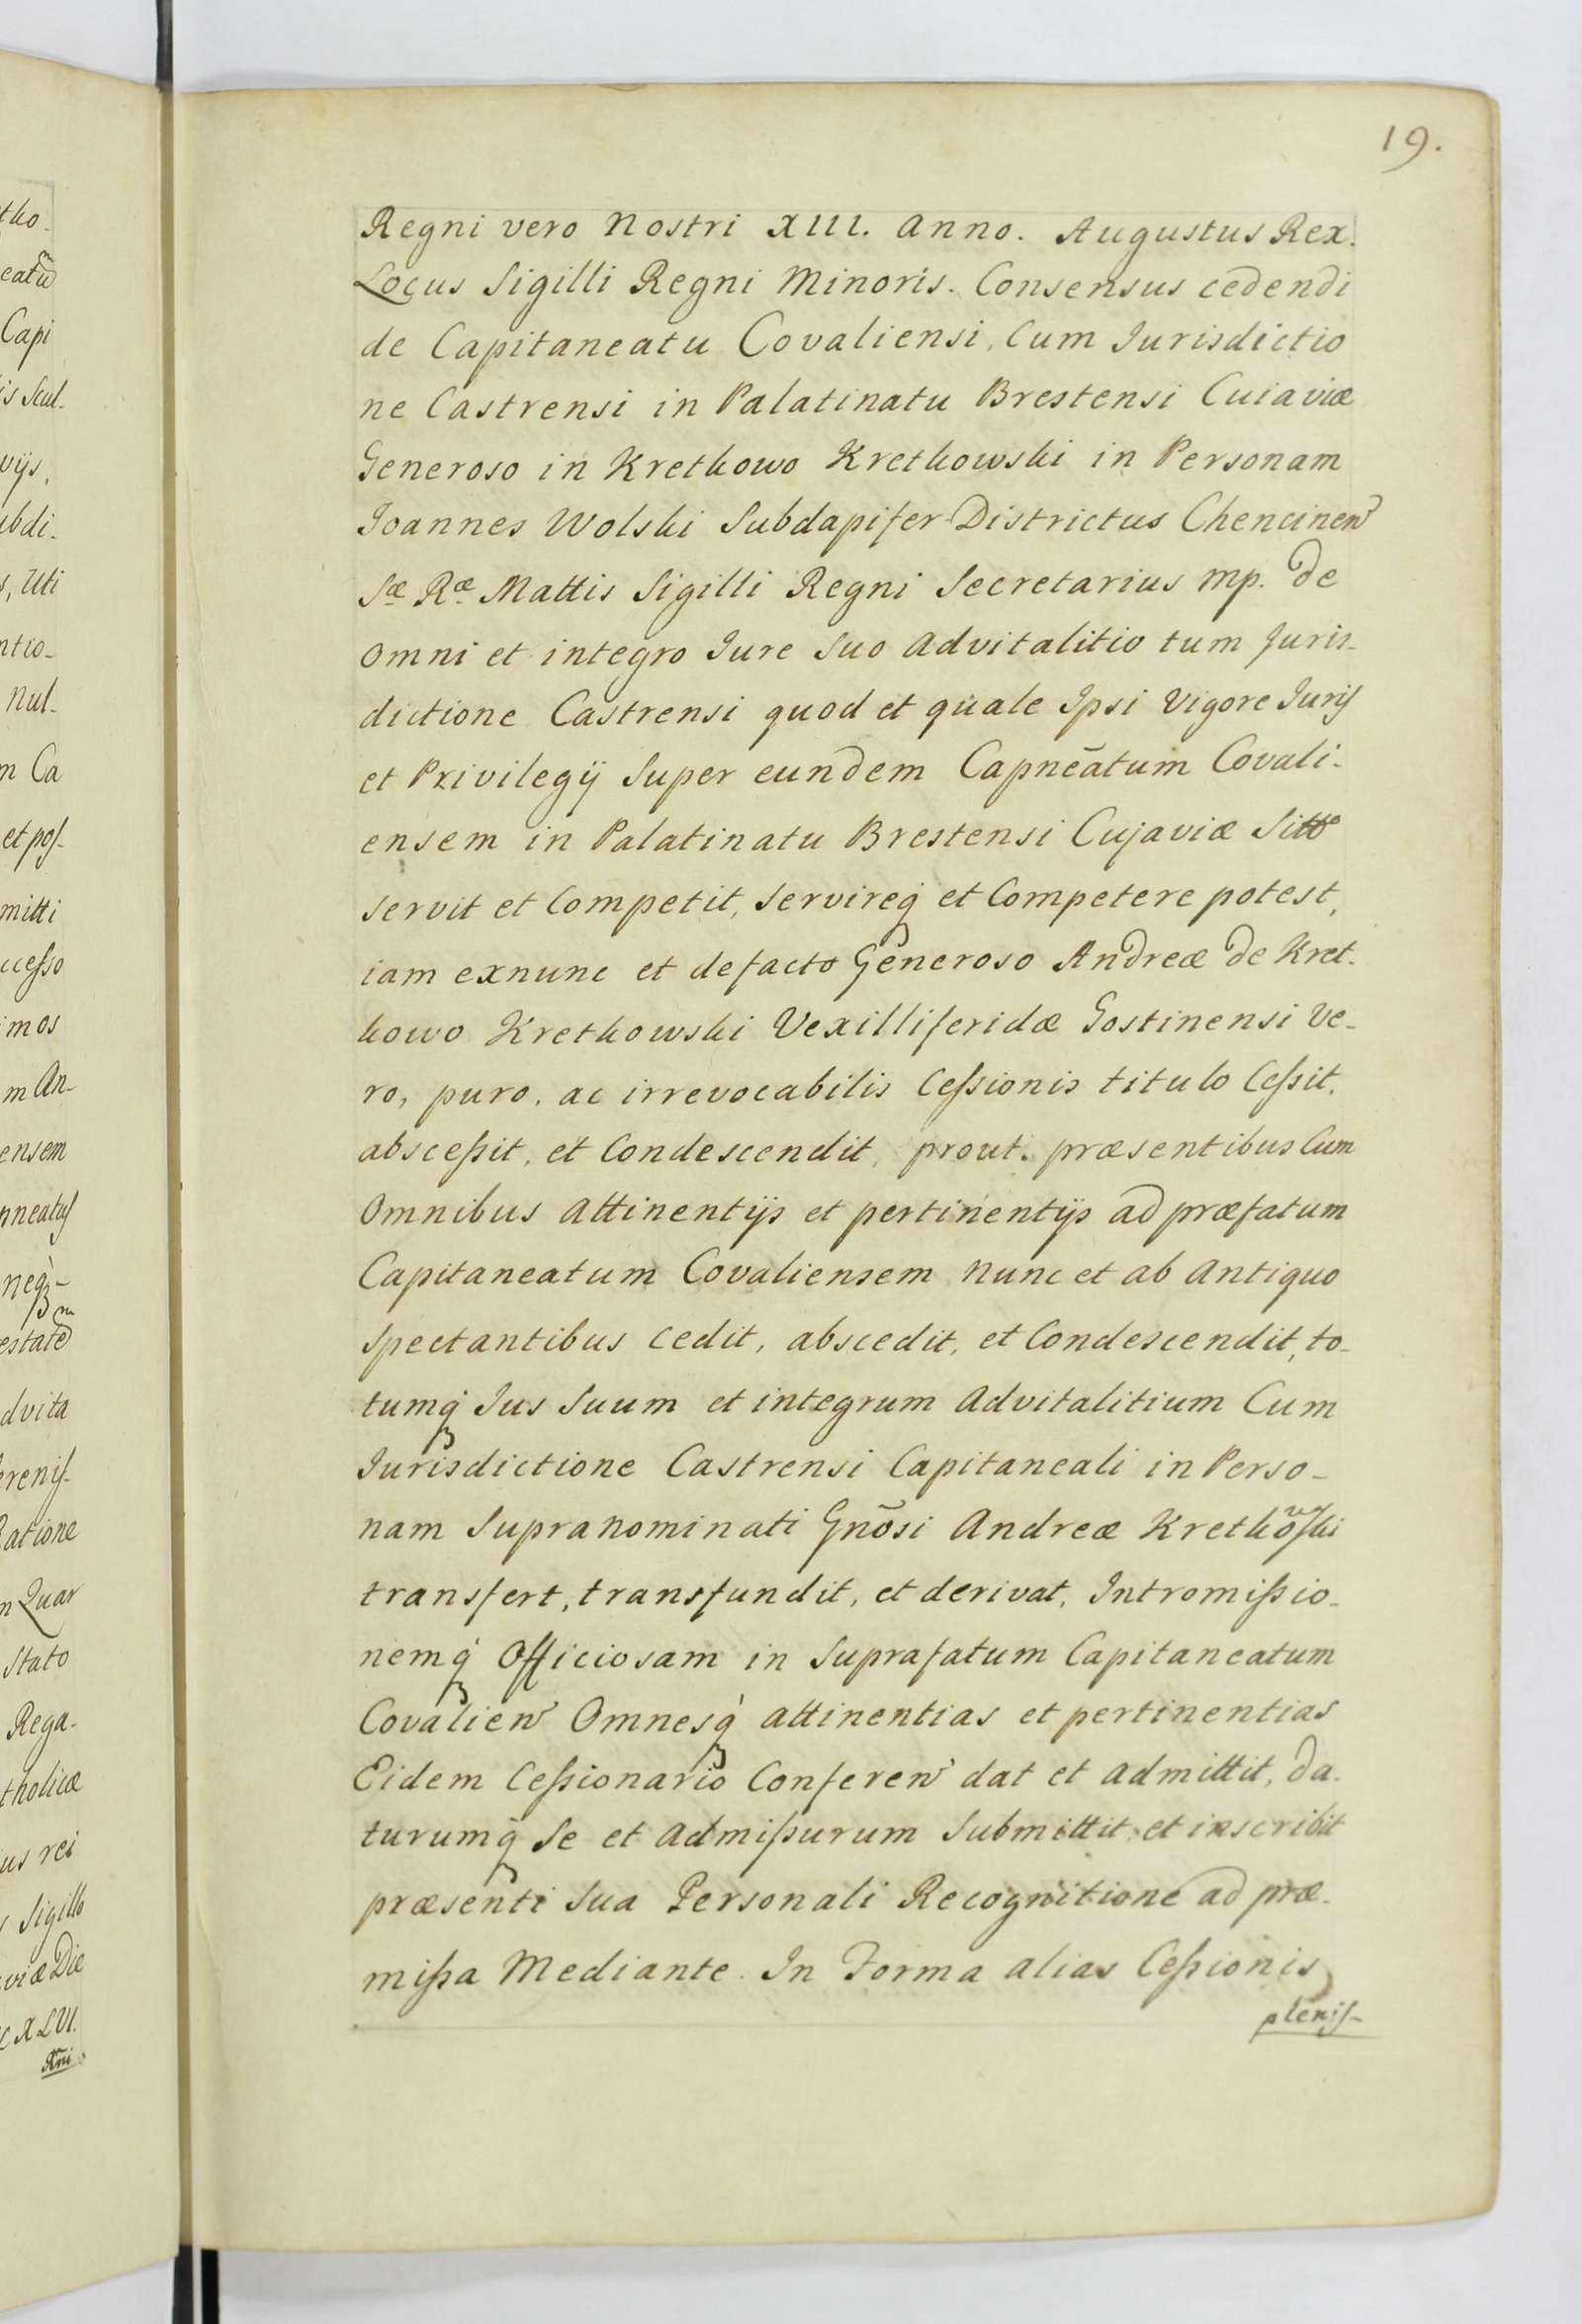 19.
Regni vero Nostri XIII. Anno. Augustus Rex.
Locus Sigilli Regni Minoris. Consensus cedendi
de Capitaneatu Covaliensi, Cum Iurisdictio
ne Castrensi in Palatinatu Brestensi Cuiaviæ
Generoso in Kretkowo Kretkowski in Personam
Ioannes Wolski Subdapifer Districtus Chencinen̄
Sæ Ræ Mattis Sigilli Regni Secretarius mp. De
Omni et integro Iure Suo Advitalitio tum Juris-
dictione Castrensi quod et quale Ipsi Vigore Iuris
et Privilegij Super eundem Capneātum Covali-
ensem in Palatinatu Brestensi Cujaviæ
servit et Competit, Servireq́ et Competere potest,
iam exnunc et defacto Generoso Andreæ De Kret-
kowo Kretkowski Vexilliferidæ Gostinensi Ve-
ro, puro, ac irrevocabilis Cessionis titulo Cessit,
abscessit, et Condescendit, prout. præsentibus Cum
Omnibus Attinentijs et pertinentijs ad præfatum
Capitaneatum Covaliensem Nunc et ab Antiquo
Spectantibus Cedit, abscedit, et Condescendit, to-
tumq́ Ius Suum et integrum Advitalitium Cum
Iurisdictione Castrensi Capitaneali in Perso-
nam Supranominati Gnōsi Andreæ Kretkowski
transfert, transfundit, et derivat, Intromissio-
nemq́ Officiosam in Suprafatum Capitaneatum
Covalien̄ Omnesq́ attinentias et pertinentias
Eidem Cessionario Conferen̄ dat et admittit, Da-
turumq́ Se et Admissurum Submittit et inscribit
præsenti Sua Personali Recognitione ad præ-
missa Mediante. In Forma alias Cessionis
pleniss-
tho-
Capi
is Scul-
vijs,
ubdi-
s, Uti
ntio-
Nul-
m Ca
et pos-
mitti
ccesso
imos
m An-
ensem
nneatus
neq́-
dvita
erenis-
Ratione
n Quar
Stato
Rega-
tholicæ
ius rei
s Sigillo
viæ Die
C XLVI.
Rñi